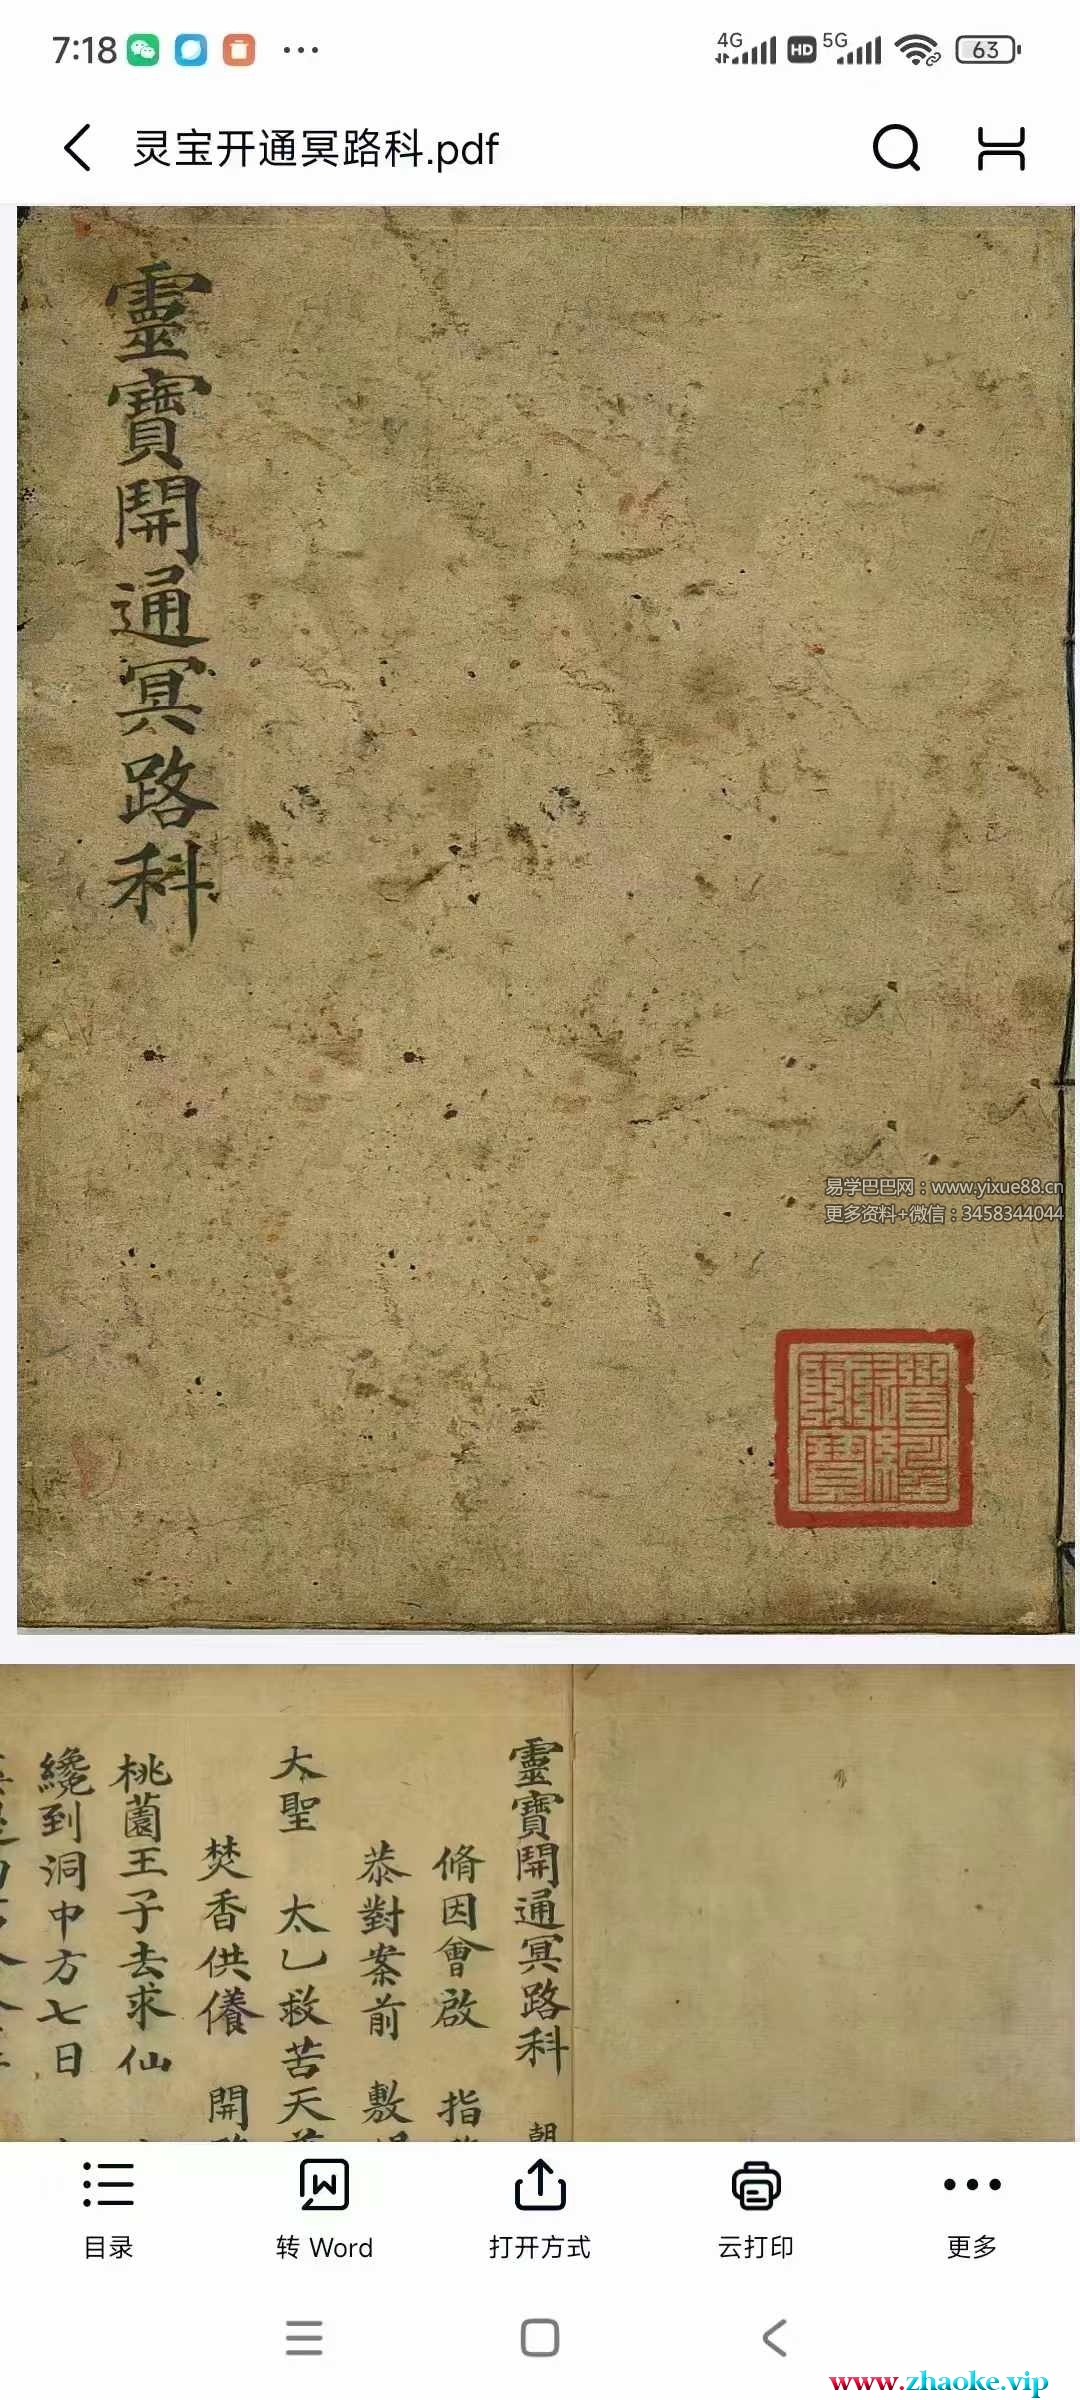 7:18
4G
HD
5G
63
灵宝开通冥路科.pdf
靈寶開通冥路科
易学巴巴网：www.yixue88.cn
更多资料+微信：3458344044
道經師寶
靈寶開通冥路科 朝
脩因會啟 指
恭對案前 敷
大聖 太乙救苦天
焚香供養 開
桃園王子去求仙
纔到洞中方七日
目录
转 Word
打开方式
云打印
更多
www.zhaoke.vip